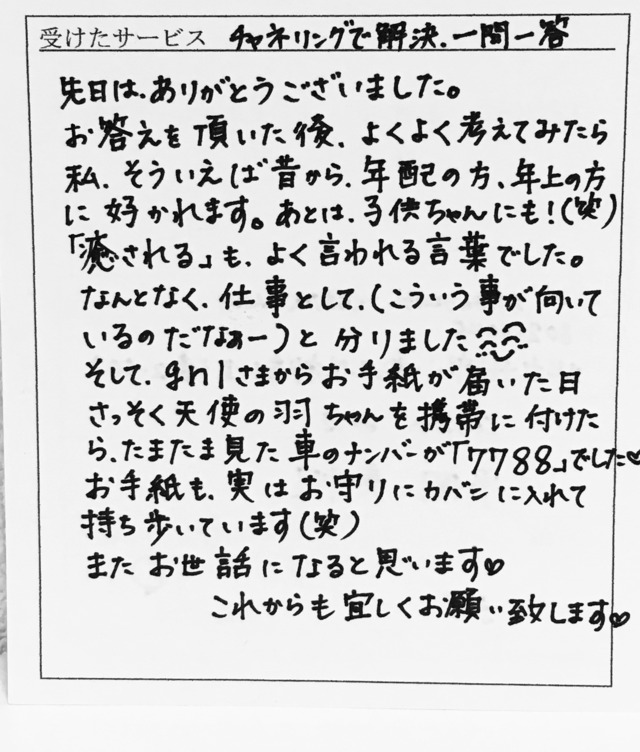 受けたサービス チャネリングで解決.一問一答
先日は、ありがとうございました。
お答えを頂いた後、よくよく考えてみたら
私、そういえば昔から、年配の方、年上の方
に好かれます。あとは、子供ちゃんにも!(笑)
「癒される」も、よく言われる言葉でした。
なんとなく、仕事として、(こういう事が向いて
いるのだなぁー)と分りました
そして、gnlさまからお手紙が届いた日
さっそく天使の羽ちゃんを携帯に付けた
ら、たまたま見た車のナンバーが「7788」でした♡
お手紙も、実はお守りにカバンに入れて
持ち歩いています(笑)
またお世話になると思います♡
これからも宜しくお願い致します♡